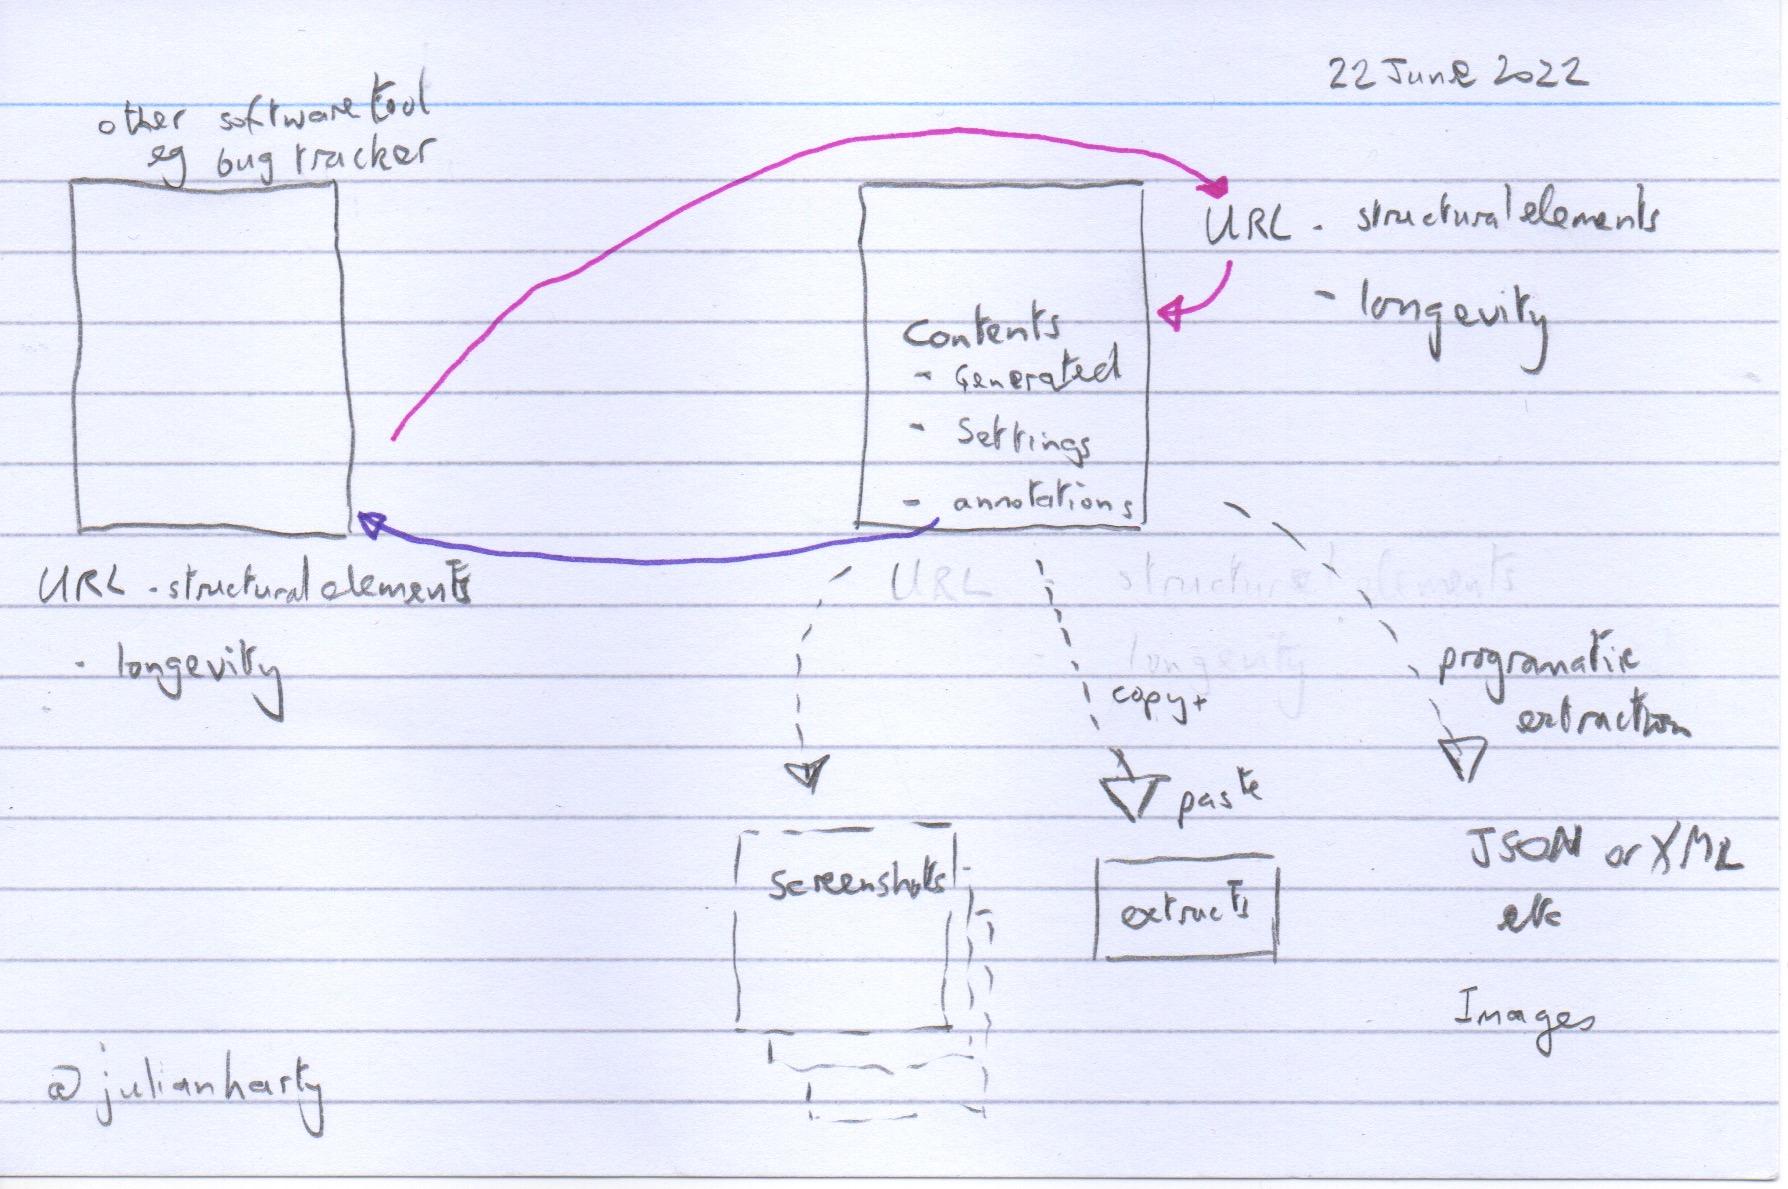 22 June 2022
other software tool
eg bug tracker
URL - structural elements
- longevity
Contents
- Generated
- Settings
- annotations
URL - structural elements
- longevity
URL structural elements
- longevity
copy +
paste
programatic
extraction
screenshots
extracts
JSON or XML
etc
Images
@julianharty